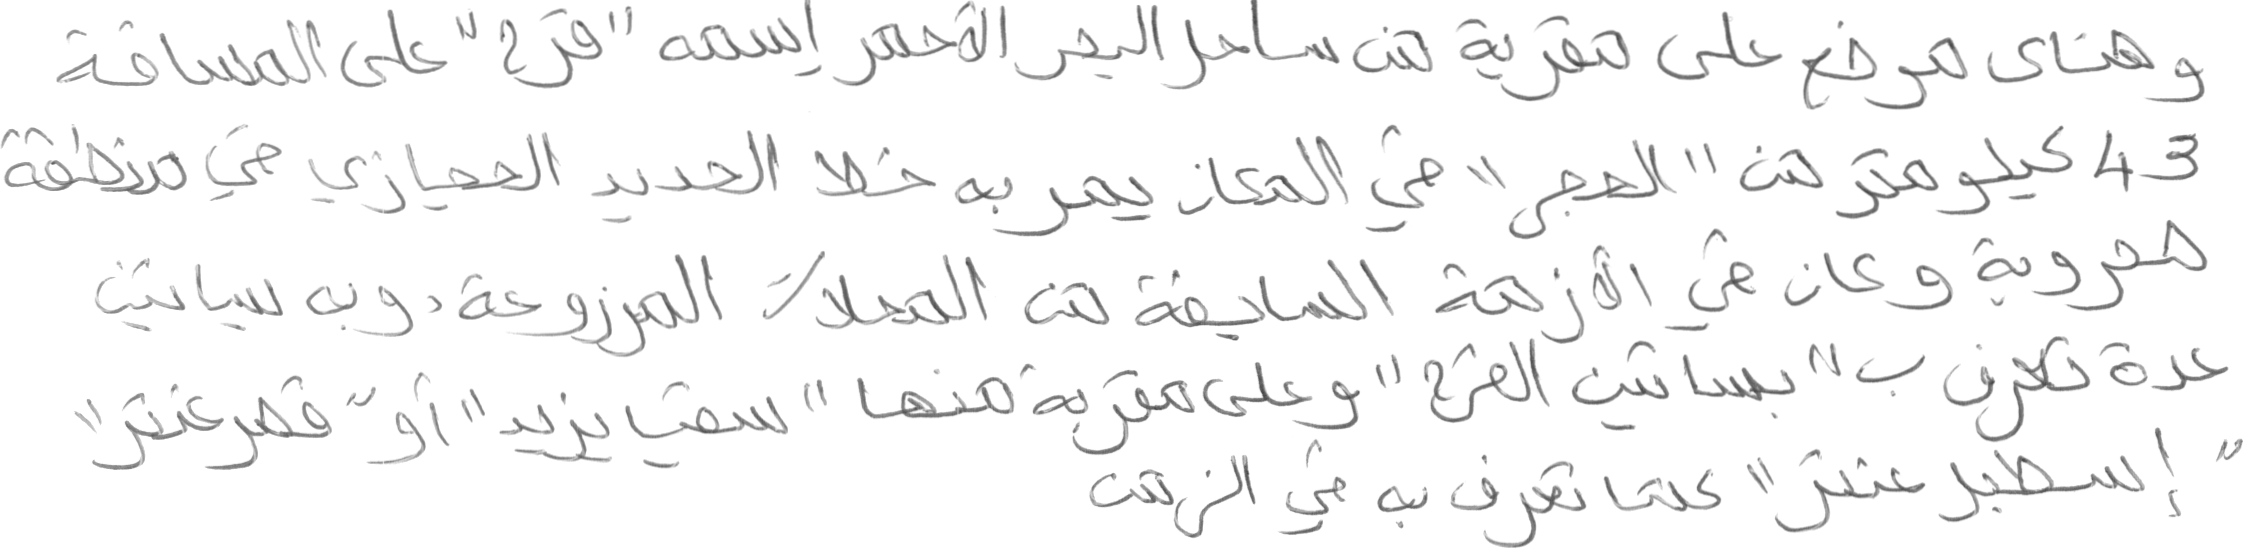 وهناك موضع على مقربة من ساحل البحر الأحمر إسمه "قرح" على المسافة
43 كيلومتر من "الحجر" في المكان يمر به خط الحديد الحجازي في منطقة
مهروبة وكان في الأزمنة السابقة من المحلات المزروعة. وبه سياتين
عدة تعرف ب "بساتين القرح" وعلى مقربة منها "سقيا يزيد" أو "قصر عنتر"
"إسطبل عنتر" كما تعرف به في الزمن